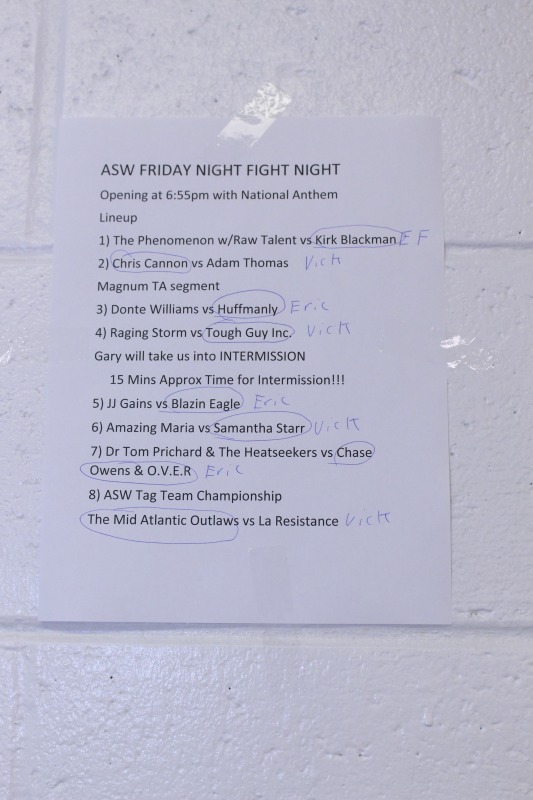 ASW FRIDAY NIGHT FIGHT NIGHT
Opening at 6:55pm with National Anthem
Lineup
1) The Phenomenon w/Raw Talent vs Kirk Blackman EF
2) Chris Cannon vs Adam Thomas Vick
Magnum TA segment
3) Donte Williams vs Huffmanly Eric
4) Raging Storm vs Tough Guy Inc. Vick
Gary will take us into INTERMISSION
15 Mins Approx Time for Intermission!!!
5) JJ Gains vs Blazin Eagle Eric
6) Amazing Maria vs Samantha Starr Vick
7) Dr Tom Prichard & The Heatseekers vs Chase
Owens & O.V.E.R Eric
8) ASW Tag Team Championship
The Mid Atlantic Outlaws vs La Resistance Vick